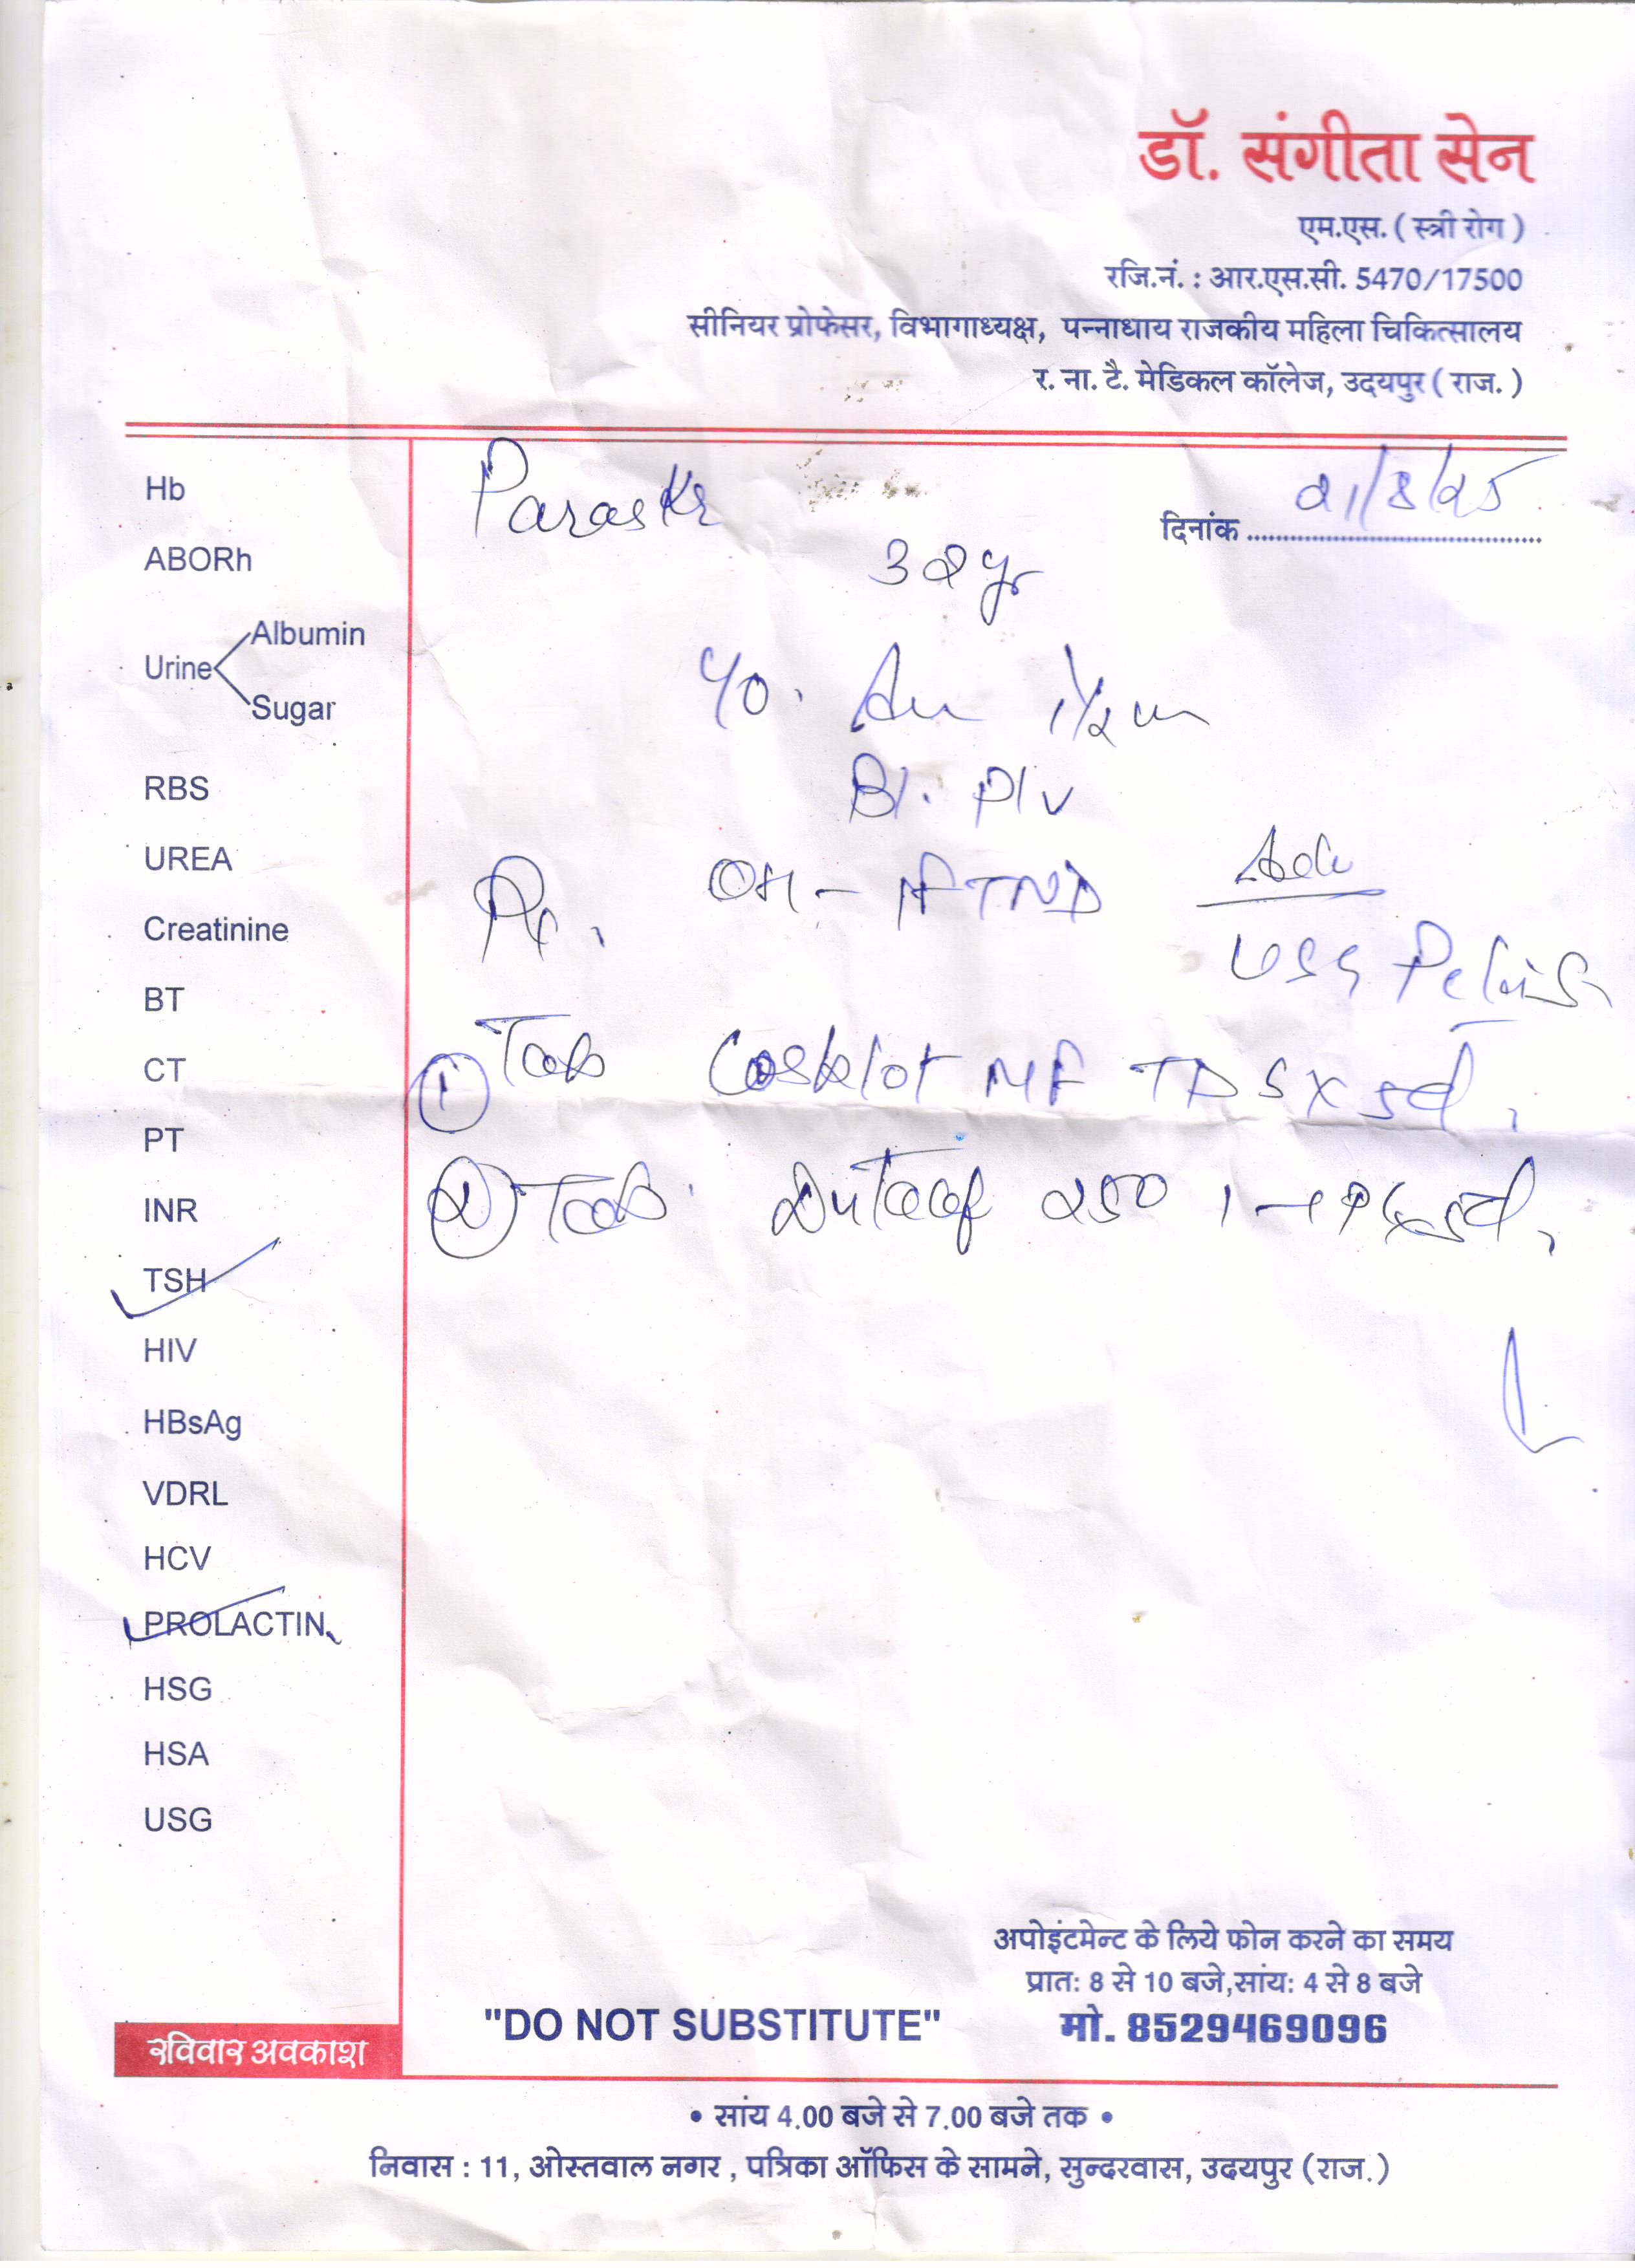 डॉ. संगीता सेन
एम.एस. ( स्त्री रोग )
रजि.नं. : आर.एस.सी. 5470/17500
सीनियर प्रोफेसर, विभागाध्यक्ष, पन्नाधाय राजकीय महिला चिकित्सालय
र. ना. टै. मेडिकल कॉलेज, उदयपुर ( राज. )
दिनांक
32 yr
Bl. P/V
FTND
USG Pelvis
① Tab MF TDS x 5d
② Tab. 250 1 5d
Hb
ABORh
Urine Albumin
Sugar
RBS
UREA
Creatinine
BT
CT
PT
INR
TSH
HIV
HBsAg
VDRL
HCV
PROLACTIN
HSG
HSA
USG
रविवार अवकाश
अपोइंटमेन्ट के लिये फोन करने का समय
प्रातः 8 से 10 बजे,सांयः 4 से 8 बजे
"DO NOT SUBSTITUTE" मो. 8529469096
• सांय 4.00 बजे से 7.00 बजे तक •
निवास : 11, ओस्तवाल नगर , पत्रिका ऑफिस के सामने, सुन्दरवास, उदयपुर (राज.)